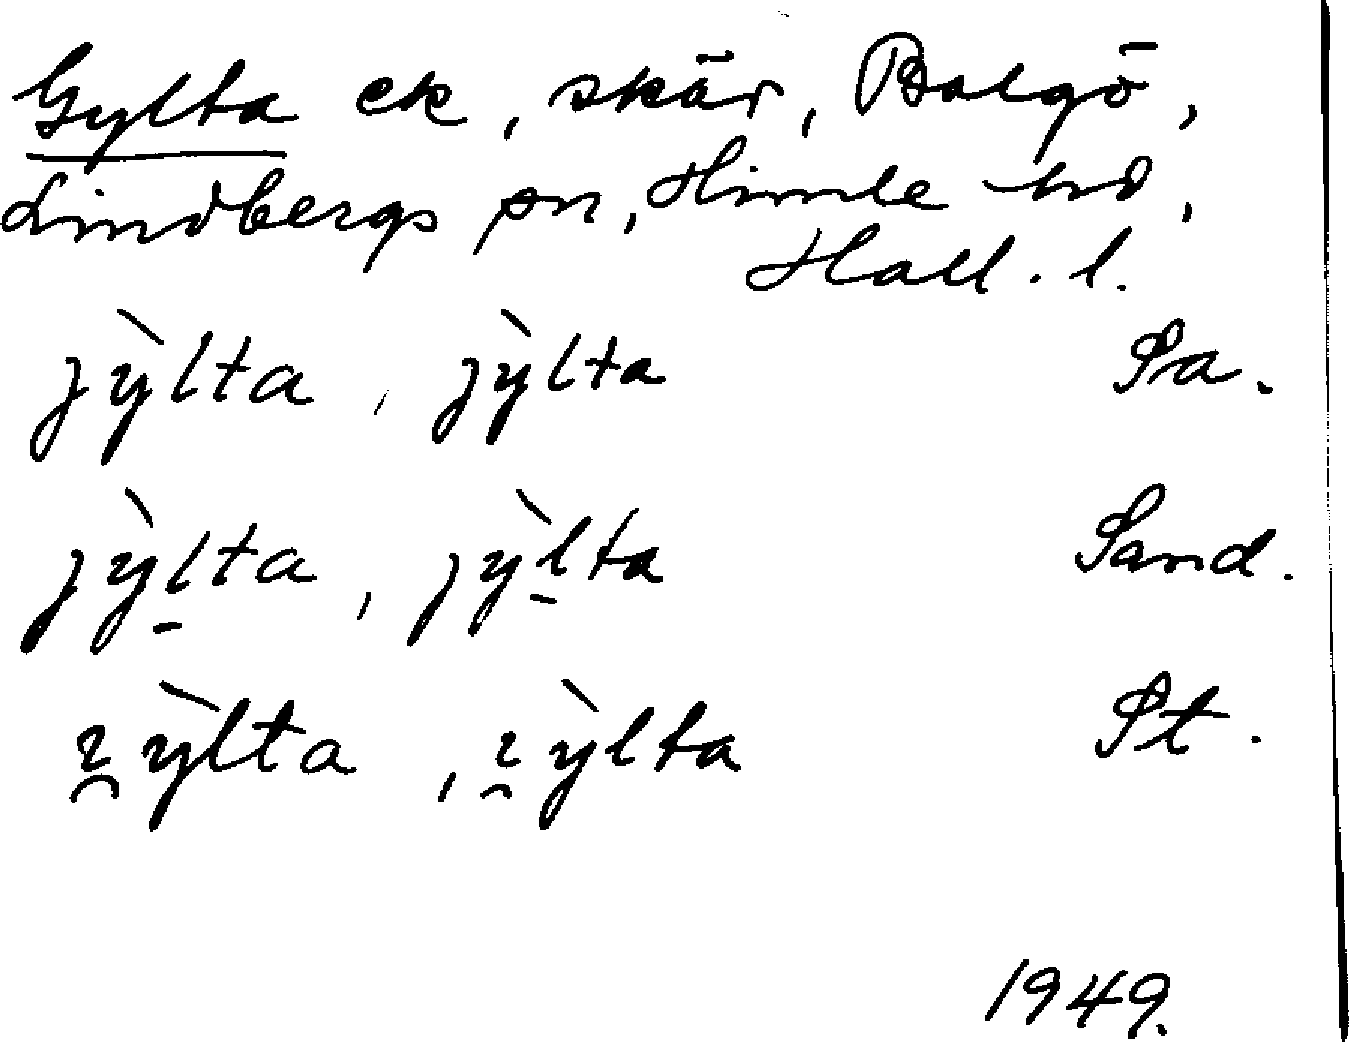 Gylta ek, skär, Balgö,
Lindbergs sn, Himle hd,
Hall. l.
jy̆̀lta, jỳlta Pa.
jỳl̠ta, jỳl̠ta Sand.
ɪ̯ỳlta, ɪ̯ỳlta Pt.
1949.